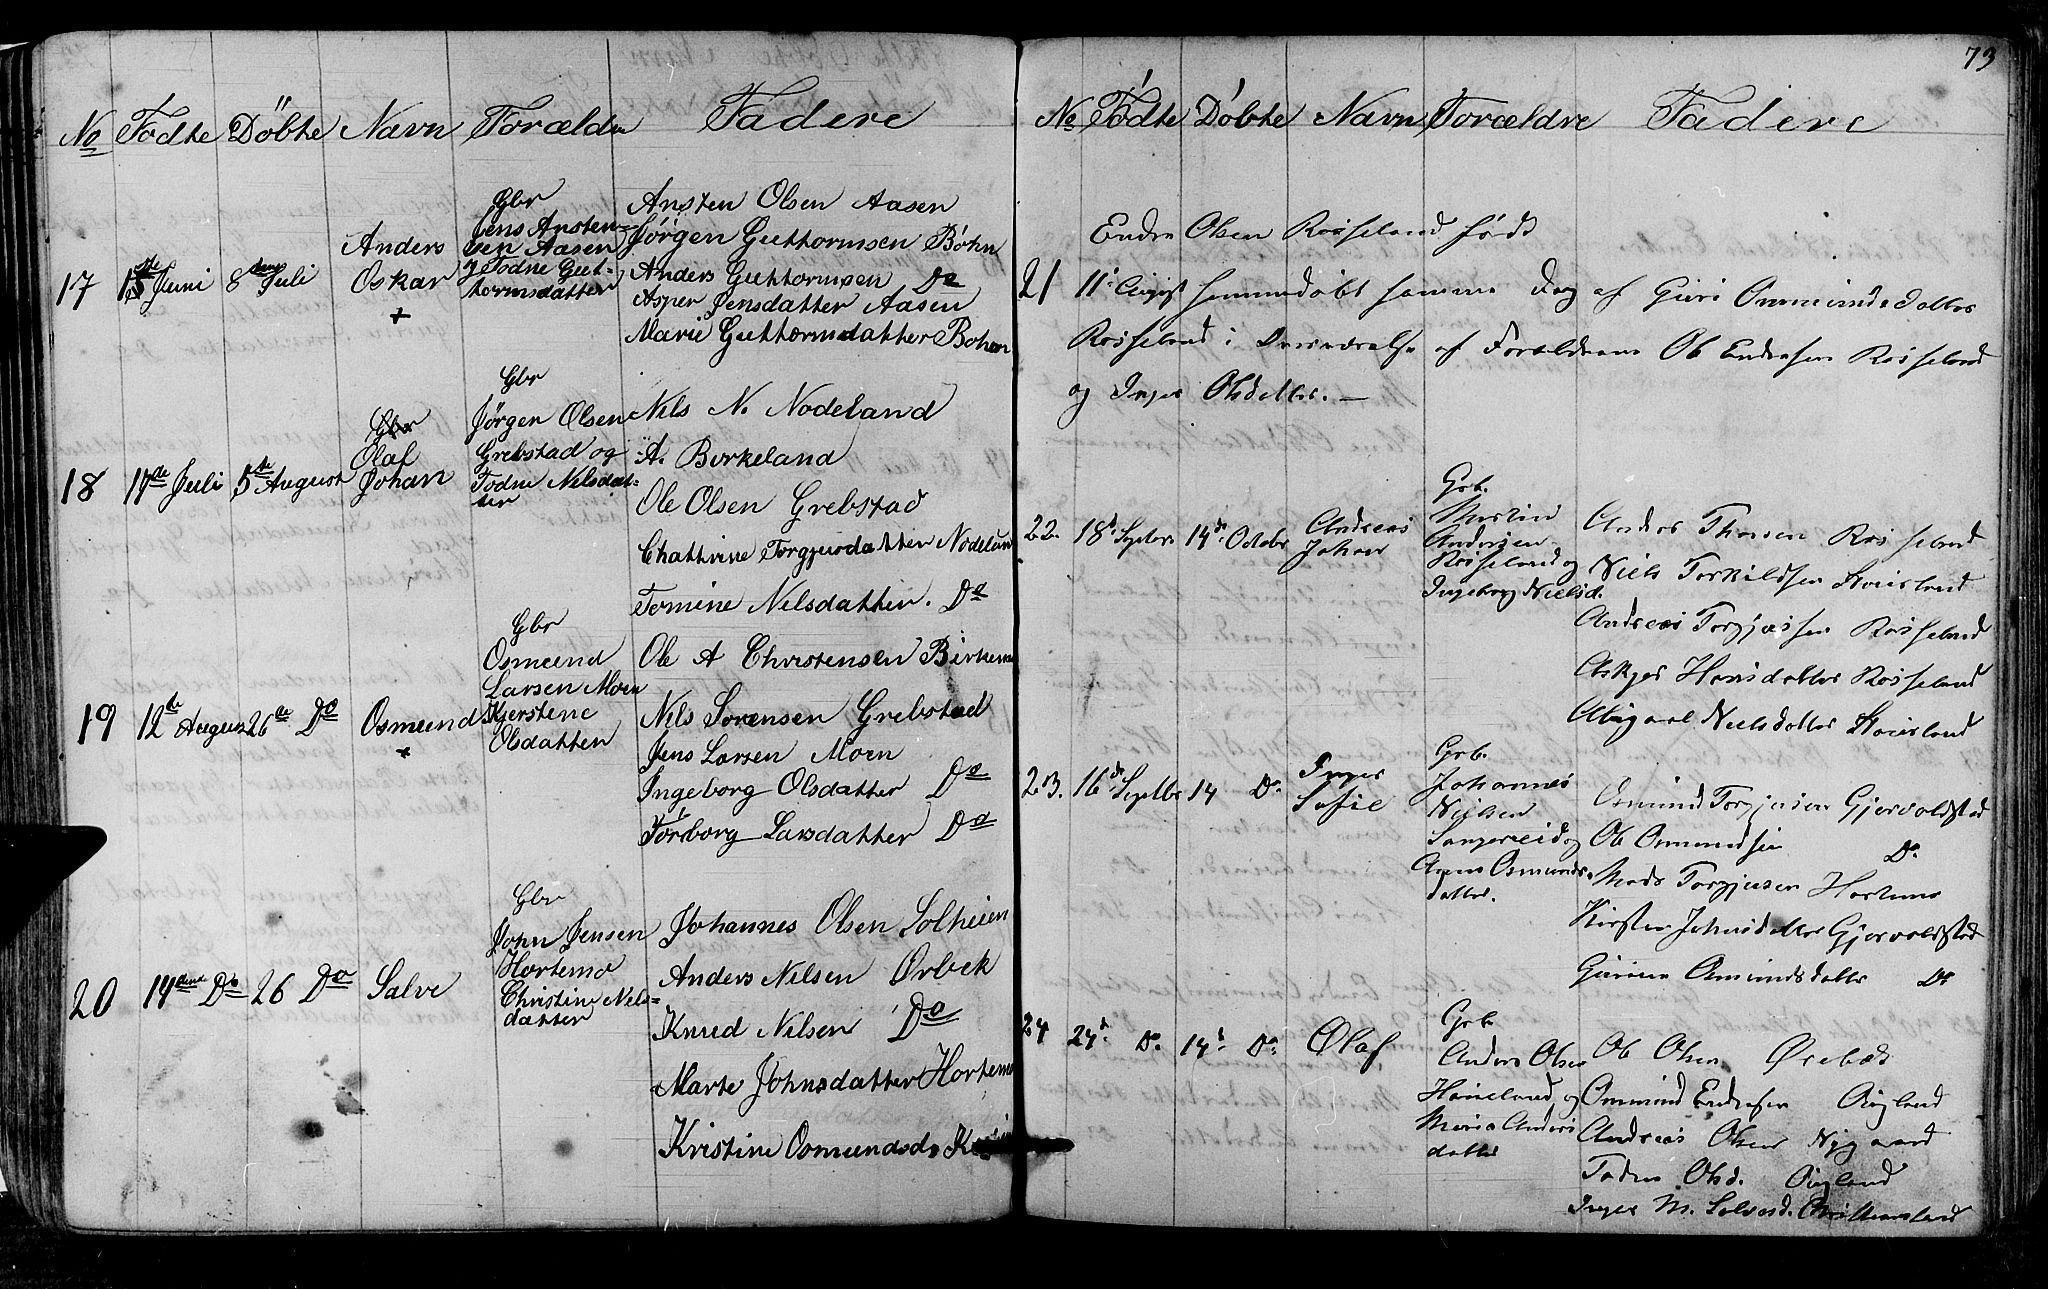 No Fødte Döbte Navn Forældre Faderc
17 15de Juni 8de Juli Anders Oskar +
Gbr
Jens Ansten=
sen Aasen
og Todne Gut-
tormsdatter
Ansten Olsen Aasen
Jörgen Guttormsen Böhn
Anders Guttormsen Do
Asper Jensdatter Aasen
Marie Guttormdatter Bohn
18 17de Juli 5de August Olaf Johan
Gbr
Jörgen Olsen
Grebstad og
Todne Nelsdat-
ter
Nils N. Nodeland
A. Birkeland
Ole Olsen Grebstad
Chattrine Torgjusdatter Nodelan
Tomine Nelsdatter. Do
19 12te August 26de Do Osmund +
Gbr
Osmund
Larsen Moen
Kjerstene
Olsdatter
Ole A Christensen Birkeno
Nels Sorensen Grebstad
Jens Larsen Moen
Ingeborg Olsdatter Do
Torborg Larsdatter Do
20 14de Do 26 Do Salve
Gbr
John Jensen
Hortemo
Christine Nels=
datter
Johannes Olsen Solheien
Anders Nilsen Orbek
Knud Nilsen Do
Marte Johnsdatter Hortemo
Kristine Osmundsd.
73
No Födte Döbte Navn Forældre Fadere
Endre Olsen Rosseland født
21 11te August hjemmedøbt samme Dag af Guri Ommundsdatter
Rosseland i Overværelse af Forældrene Ole Endresen Rosseland
og Inger Olsdatter. —
22. 18de Septbr 14de Octobr Andreas Johan
Grb.
Martin
Andersen
Rosseland og
Ingeborg Nielsd.
Anders Thorsen Rosseland
Niels Torkildsen Stousland
Andreas Torgjussen Rosseland
Askjer Hansdatter Rosseland
Abigael Nielsdatter Stousland
23. 16de Septbr 14 Do. Inger Sofie
Grb.
Johannes
Nielsen
Langereid og
Anne Osmunds
datter.
Osmund Torgjusen Gjervoldstad
Ole Ommundsen Do.
Mads Torgjusen Hortemo
Kirsten Johnsdatter Gjervoldstad
Gurine Osmundsdatter Do
24 24de Do. 14de Do. Olaf
Grb
Anders Olsen
Haueland og
Maria Anders
datter
Ole Olsen Ørebæk
Ommund Endresen Augland
Andreas Olsen Nygaard
Todne Olsd. Augland
Inger M. Salvesd. Christiansland